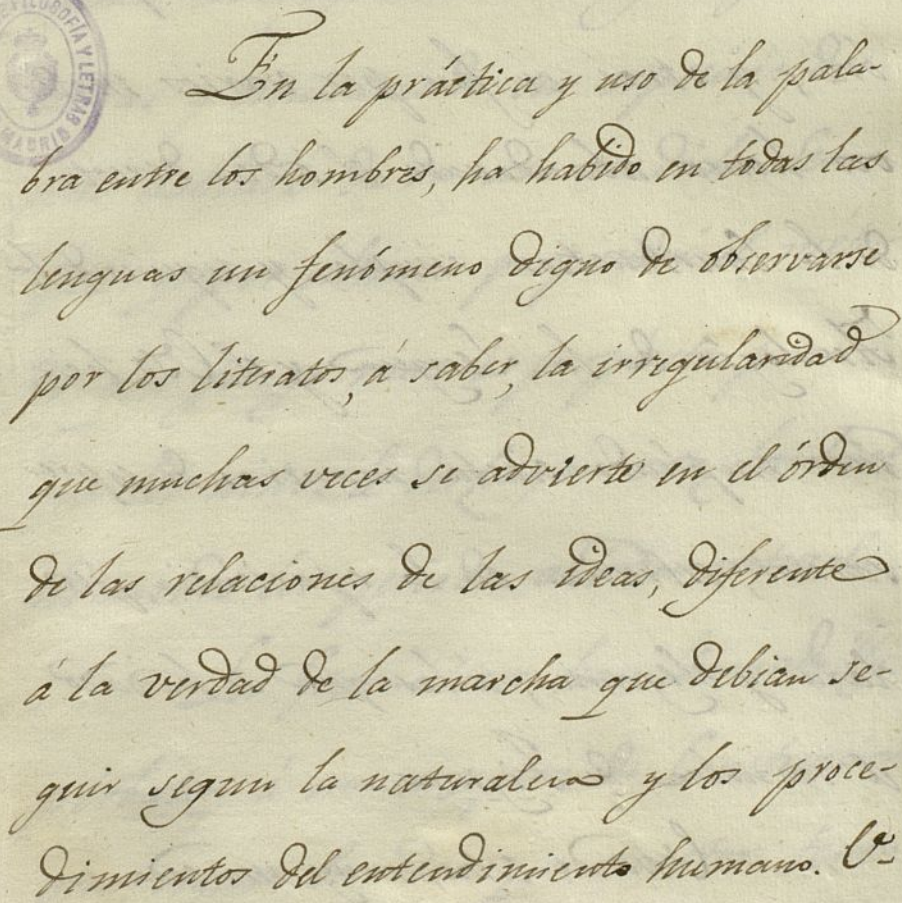 FILOSOFÍA Y LETRAS
MADRID
En la práctica y uso de la pala-
bra entre los hombres, ha habido en todas las
lenguas un fenómeno digno de observarse
por los literatos, á saber, la irregularidad
que muchas veces se advierte en el órden
de las relaciones de las ideas, diferente
á la verdad de la marcha que debian se-
guir segun la naturaleza y los proce-
dimientos del entendimiento humano.